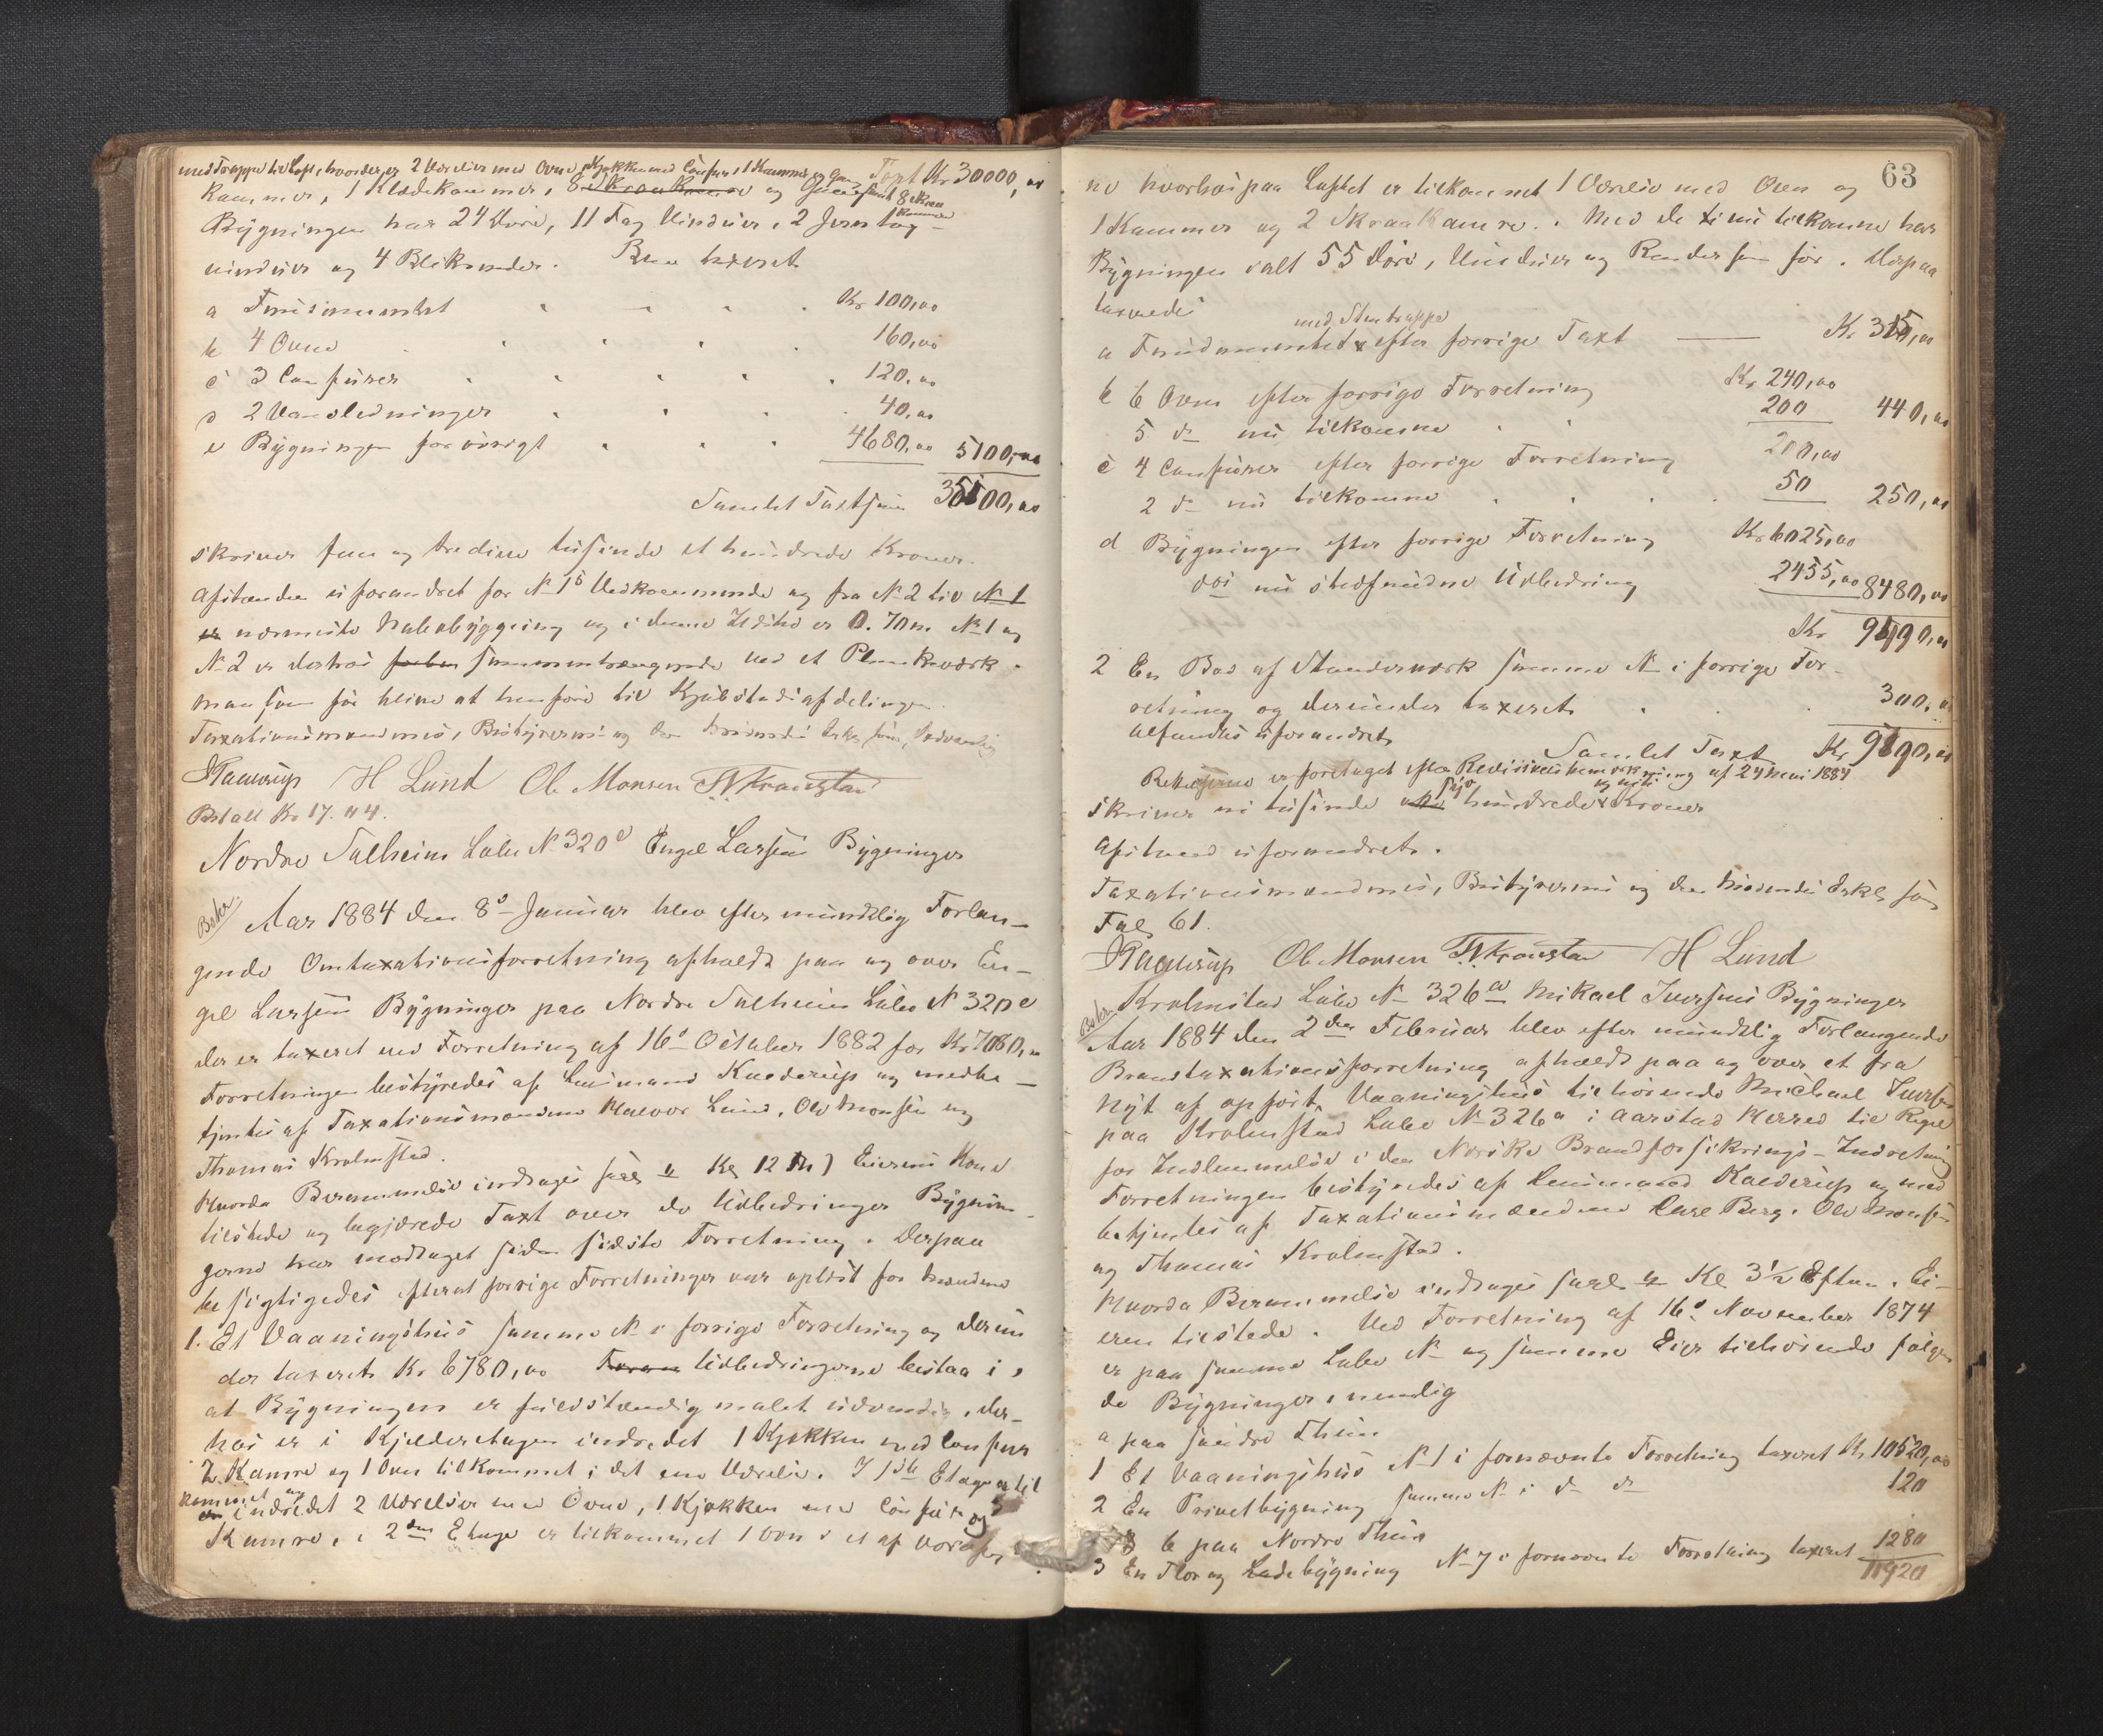 med Trappe til Loft, hvorder er 2 Værelser med Ovne, Kjøkken med Comfur, 1 Kammer og Gang Taxt Kr 30000,00
Kammer, 1 Klædekammer, 8 Skraakamre og Gang samt 8 Skraa
kammer
Bygningen har 24 Døre, 11 Fag Vinduer, 2 Jerntag-
vinduer og 4 Blikrender. Blev taxeret
a Fundamentet Kr 100,00
b 4 Ovne 160,00
c 3 Comfurer 120,00
d 2 Vandledninger 40,00
e Bygningen forøvrigt 4680,00 5100,00
Samlet Taxtsum 35100,00
skriver fem og tredive tusinde et hundrede Kroner.
Afstanden uforandret for No 1s Vedkommende og fra No 2 til No 1
er nærmeste Nabobygning og i denne Ildsted er 0.70m. No 1 og
No 2 er derhos sammenhængende ved et Plankeværk.
man som før blive at henføre til Kjøbstadsafdelingen.
Taxationsmændenes, Bestyrerens og den brændende
Kaarup H Lund Ole Monsen Th Kronstad
Betalt Kr 17.44.
Nordre Solheim Løbe No 320e Engel Larsens Bygninger
Beskr.
Aar 1884 den 8de Januar blev efter mundtlig Forlan-
gende Omtaxationsforretning afholdt paa og over En-
gel Larsens Bygninger paa Nordre Solheim Løbe No 320e
der er taxeret ved Forretning af 16de October 1882 for Kr 7080,00
Forretningen bestyredes af Lensmand Kaarup og medbe-
tjentes af Taxationsmændene Halvor Lund, Ole Monsen og
Thomas Kronstad.
Hvorda Berammelse indtages Kl 12 Eierens Kone
tilstede og begjærede Taxt over de Udbedringer Bygnin-
gerne har modtaget siden sidste Forretning. Derpaa
besigtigedes efterat forrige Forretninger var oplæst for Mændene
1. Et Vaaningshus samme No i forrige Forretning og derun
der taxeret Kr 6780,00 Udbedringerne bestaa i,
at Bygningen er fuldstændig malet udvendig, der-
hos er i Kjælderetagen indredet 1 Kjøkken med Comfur
2 Kamre og 1 Ovn tilkommet i det ene Værelse. I 1ste Etage er til
kommet og
indredet 2 Værelser med Ovne, 1 Kjøkken med Comfur og
Kamre, i 2den Etage er tilkommet 1 Ovn i et af Værelser
63
ne hvorhos paa Loftet er tilkommet 1 Værelse med Ovn og
1 Kammer og 2 Skraakamre. Med de nu tilkomne har
Bygningen ialt 55 Døre, Vinduer og Render som før. Derpaa
taxeredes
med Stentrappe
a Fundamentet efter forrige Taxt Kr. 315,00
b 6 Ovne efter forrige Forretning Kr 240,00
5 do nu tilkomne 200 440,00
c 4 Comfurer efter forrige Forretning 200,00
2 do nu tilkomne 50 250,00
d Bygningen efter forrige Forretning Kr 6025,00
do nu stedfundne Udbedring 2455,00 8480,00
Kr 9490,00
2 En Bod af Standerværk samme No i forrige For-
retning og derunder taxeret 300,00
befandtes uforandret
Samlet Taxt Kr 9790,00
Rettelserne er foretaget efter Revisionsbemærkning af 24 Mai 1884
syv og niti
skriver ni tusinde hundrede Kroner
Afstand uforandret.
Taxationsmændenes, Bestyrerens og den
Fol. 61.
Kaarup Ole Monsen Th Kronstad H Lund
Beskr.
Kronstad Løbe No 326a Mikael Iversens Bygninger
Aar 1884 den 2den Februar blev efter mundtlig Forlangende
Brandtaxationsforretning afholdt paa og over et fra
Nyt af opført Vaaningshus tilhørende Michael Iversen
paa Kronstad Løbe No 326a i Aarstad Herred til Regel
for Indlemmelse i den Norske Brandforsikrings-Indretning
Forretningen bestyredes af Lensmand Kaarup og med
betjentes af Taxationsmændene Carl Berg, Ole Monsen
og Thomas Kronstad.
Hvorda Berammelse indtages Kl 3½ Efterm. Ei-
eren tilstede. Ved Forretning af 16de November 1874
er paa samme Løbe No og samme Eier tilhørende følgen
de Bygninger, nemlig
a paa søndre Thun
1 Et Vaaningshus No 1 i fornævnte Forretning taxeret Kr. 10520,00
2 En Privetbygning samme No i do do 120
b paa Nordre Thun
3 En Flor og Ladebygning No 7 i fornævnte Forretning taxeret 1280
11920